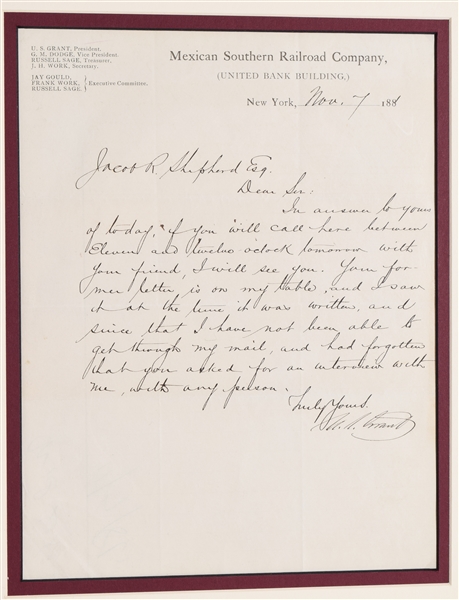 U. S. GRANT, President.
G. M. DODGE, Vice President.
RUSSELL SAGE, Treasurer.
J. H. WORK, Secretary.
JAY GOULD,
FRANK WORK,
RUSSELL SAGE,
} Executive Committee.
Mexican Southern Railroad Company,
(UNITED BANK BUILDING,)
New York, Nov. 7 1881
Jacob R. Shepherd Esq.
Dear Sir:
In answer to yours
of today, if you will call here between
Eleven and twelve o'clock tomorrow with
your friend, I will see you. Your for-
mer letter is on my table, and I saw
it at the time it was written, and
since that I have not been able to
get through my mail, and had forgotten
that you asked for an interview with
me, with any person.
Truly Yours.
U. S. Grant